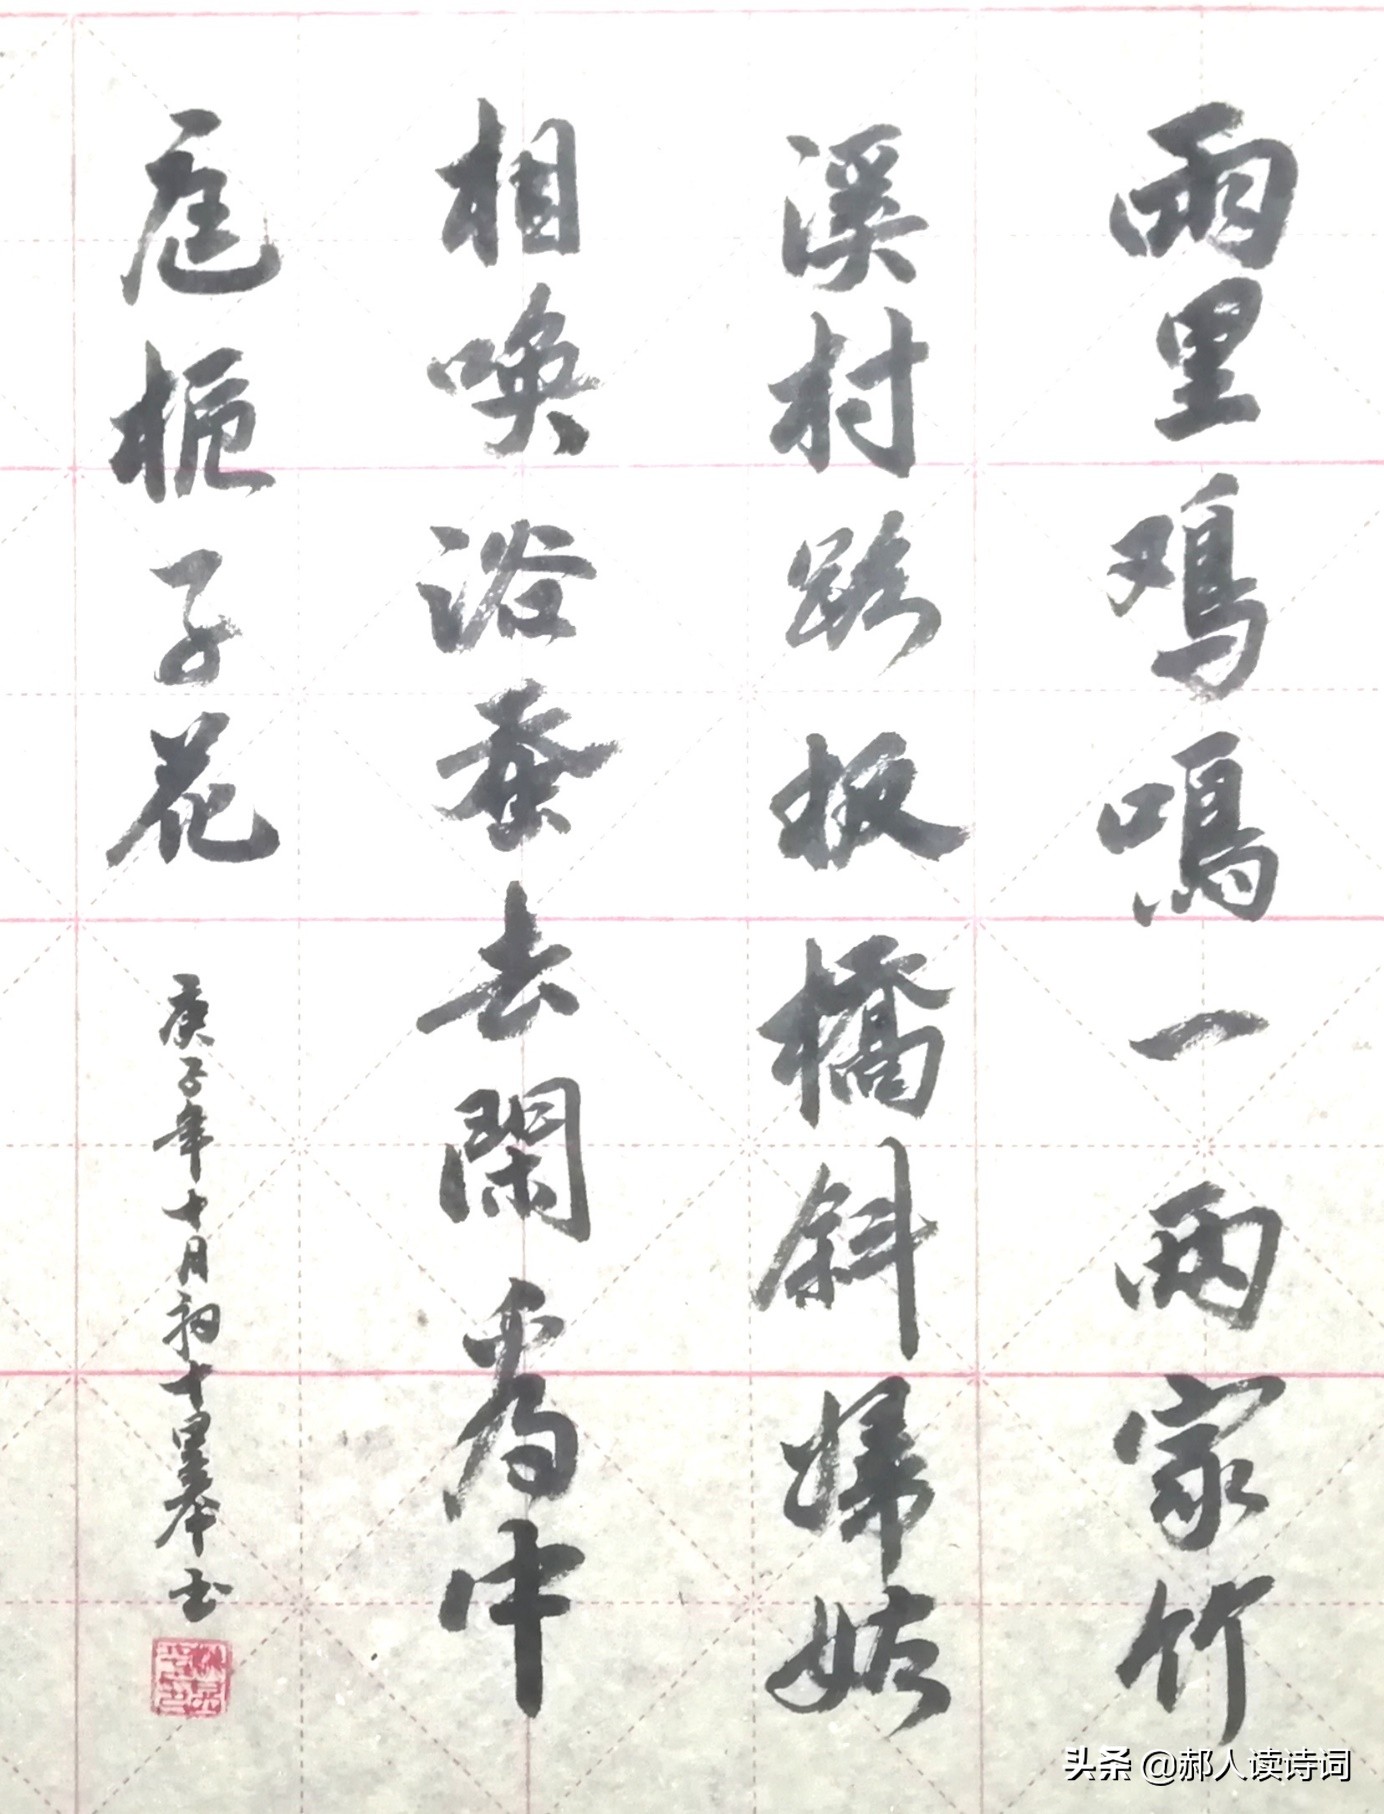 雨里鸡鸣一两家竹
溪村路板橋斜婦姑
相唤浴蚕去閑看中
庭栀子花
庚子年十月初十
头条 @郝人读诗词